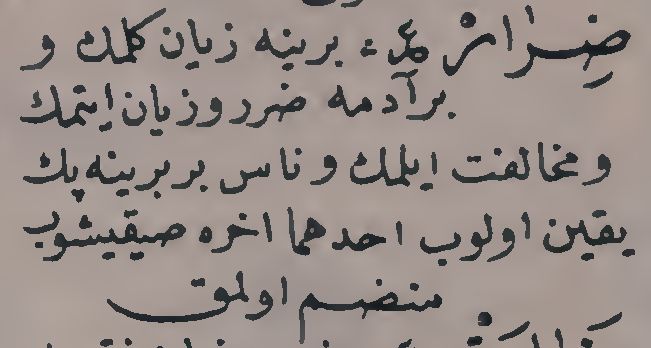 ضِرَارْ ع برينه زيان كلمك و
برآدمه ضرر و زيان ايتمك
و مخالفت ايلمك و ناس بربرينه پك
يقين اولوب احدهما اخره صيقيشوب
منضم اولمق